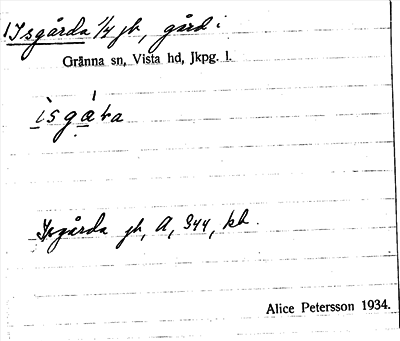 Isgårda 1/4 jb, gård i
Gränna sn, Vista hd, Jkpg. l.
ìsgára
Isgårda jb, A, 344, kb.
Alice Petersson 1934.